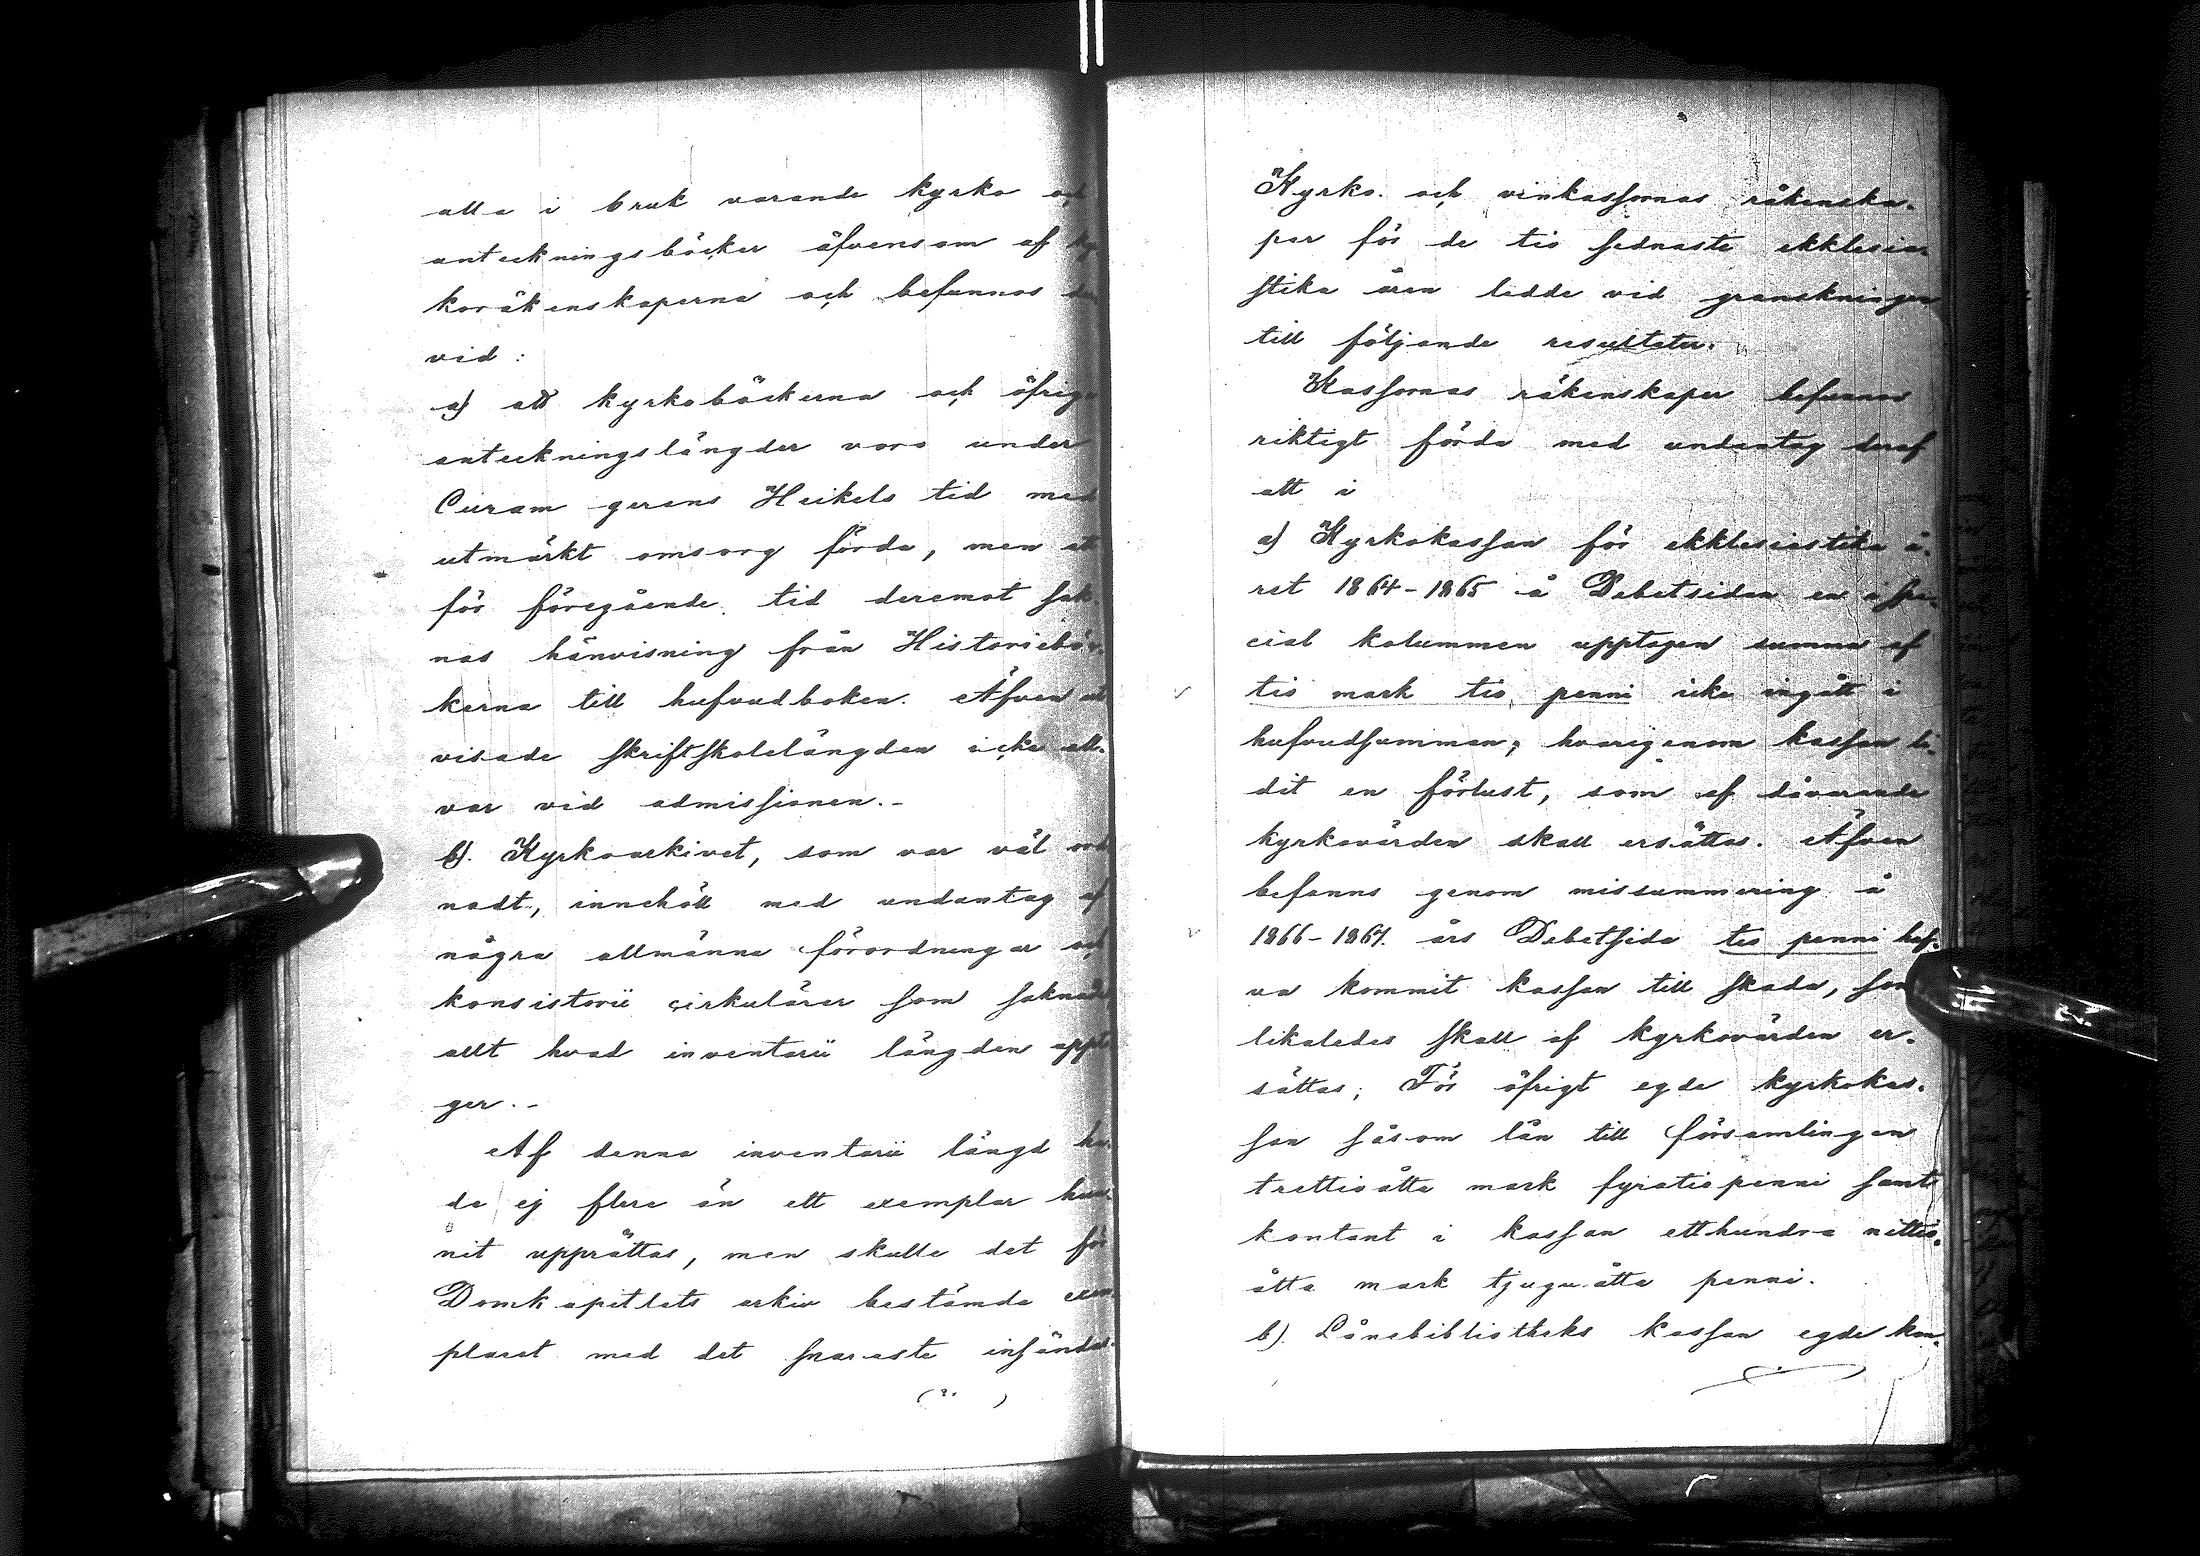 alla i bruk varande kyrko och
anteckningsböcker äfvensom af
koräkenskaperna och befunnos
vid:
a) att kyrkoböckerna och öfriga
anteckningslängder voro under
Curam gerens Heikels tid med
utmärkt omsorg förda, men att
för föregående tid deremot sak-
nas hänvisning från Historiebö-
kerna till hufvudboken. Äfven ut
visade skriftskolelängden icke all-
var vid admissionen.-
b). Kyrkoarkivet, som var väl ord
nadt, innehöll med undantag af
några allmänna förordningar och
konsistorii cirkulärer som saknades
allt hvad inventarii längden uppt
ger.-
Af denna inventarii längd ha-
de ej flere än ett exemplar hun-
nit upprättas, men skulle det för
Domkapitlets arkiv bestämda exem
plaret med det snaraste insändas.
Kyrko- och vinkassornas räkenska-
per för de tio sednaste ekklesia-
stika åren ledde vid granskningen
till följande resultater.
Kassornas räkenskaper befunnos
riktigt förda med undantag deraf
att i
a) Kyrkokassan för ekklesiastika å-
ret 1864-1865 å Debetsidan en i spe-
cial kolumnen upptagen summa af
tio mark tio penni icke ingått i
hufvudsumman, hvarigenom kassan li-
dit en förlust, som af dåvarande
kyrkovärden skall ersättas. Äfven
befanns genom missummering å
1866-1867. års Debetsida tio penni haf-
va kommit kassan till skada, som
likaledes skall af kyrkovärden er-
sättas; För öfrigt egde kyrkokas-
san såsom lån till församlingen
trettioåtta mark fyratiopenni samt
kontant i kassan etthundra nittio-
åtta mark tjuguåtta penni.
b). Lånebibliotheks kassan egde kon-